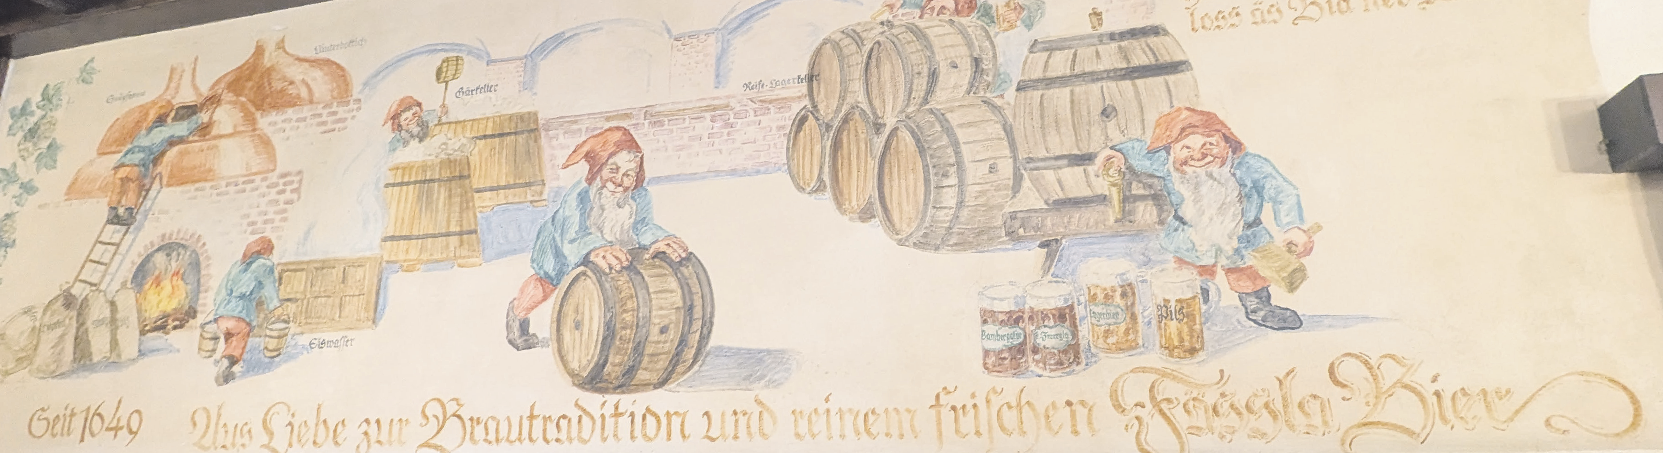 loss äs Bia
Läuterbottich
Gärkeller
Reife-Lagerkeller
Eiswasser
Lagerbier
Pils
Seit 1649 Aus Liebe zur Brautradition und reinem frischen Fässla Bier